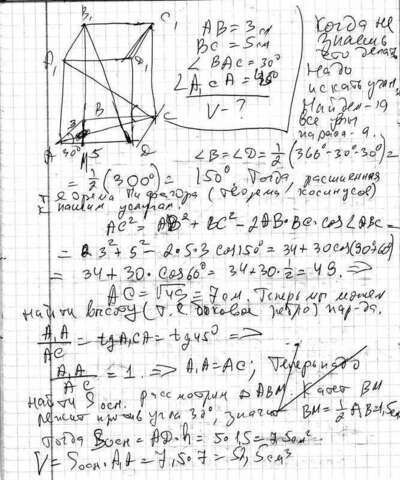 B₁ C₁
A₁ D₁
B C
A D
30° 5
AB = 3 см
BC = 5 см
∠ BAC = 30°
∠ A₁CA = 45°
V - ?
Когда не
знаешь
что делать
Надо
искать углы.
Найдем
все углы
∠B = ∠D = 1/2 (360° - 30° - 30°) =
= 1/2 (300°) = 150°. Тогда, расширенная
теорема Пифагора (теорема косинусов)
к нашим услугам.
AC² = AB² + BC² - 2AB·BC·cos∠ABC =
= 3² + 5² - 2·5·3 cos150° = 34 + 30 cos
= 34 + 30·cos60° = 34 + 30·1/2 = 49. =>
AC = √49 = 7 см. Теперь мы можем
найти высоту (т.е. боковое ребро) пар-да.
A₁A/AC = tgA₁CA = tg45° =>
A₁A/AC = 1. => A₁A = AC; Теперь надо
найти Sосн. рассмотрим △ABM Катет BM
лежит против угла 30°, значит BM = 1/2 AB = 1,5см
Тогда Sосн = AD·h = 5·1,5 = 7,5см²
V = Sосн·A₁A = 7,5·7 = 52,5см³